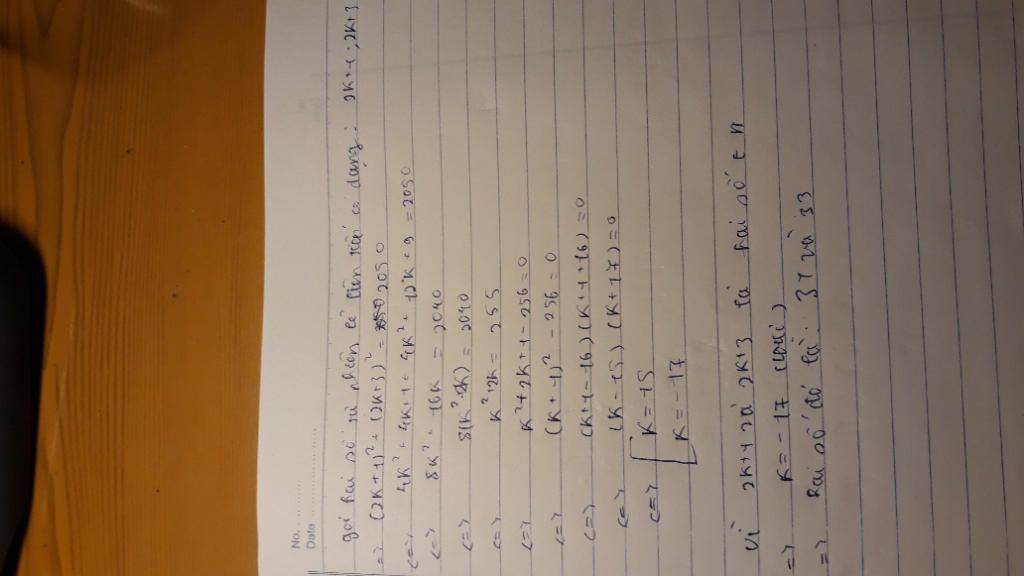 No. ............
Date ..................
gọi hai số tự nhiên lẻ liên tiếp có dạng: 2K+1; 2K+3
=> (2K+1)² + (2K+3)² = 2050
<=> 4K² + 4K+1 + 4K² + 12K + 9 = 2050
<=> 8K² + 16K = 2040
<=> 8(K²+2K) = 2040
<=> K²+2K = 255
<=> K²+2K+1-256=0
<=> (K+1)² - 256 = 0
<=> (K+1-16)(K+1+16)=0
<=> (K-15)(K+17)=0
<=> [K=15
K=-17
Vì 2K+1 và 2K+3 là hai số ∈ N
=> K=-17 (loại)
=> hai số đó là: 31 và 33